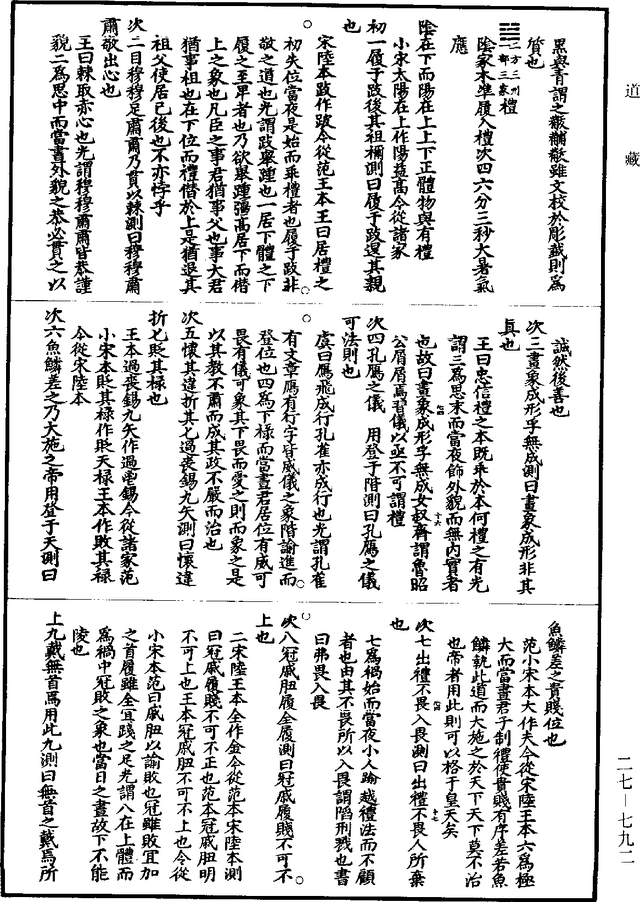 道藏
黑與青謂之黻黼黻雖文校於彫戴則爲
質也
二方二州
一部三家
禮
陰家木準履入禮次四六分三秒大暑氣
應
陰在下而陽在上上下正體物與有禮
小宋太陽在上作陽益高今從諸家
初一履于跂後其祖禰測曰履于跂退其親
也
宋陸本跂作跛今從范王本王曰居禮之
初失位當夜是始而乖禮者也履于跂非
敬之道也光謂跂舉踵也一居下體之下
履之至卑者也乃欲舉踵彊高居下而僭
上之象也凡臣之事君猶事父也事大君
猶事祖也在下位而禮僭於上是猶退其
祖父使居己後也不亦悖乎
次二目穆穆足肅肅乃貫以棘測曰穆穆肅
肅敬出心也
王曰棘取赤心也光謂穆穆肅肅皆恭謹
貌二爲思中而當晝外貌之恭必貫之以
誠然後善也
次三畫象成形孚無成測曰畫象成形非其
真也
王曰忠信禮之本既乖於本何禮之有光
謂三爲思末而當夜飾外貌而無内實者
也故曰畫象成形孚無成女叔齊謂魯昭
公屑屑焉習儀以亟不可謂禮
次四孔鴈之儀用登于階測曰孔鴈之儀
可法則也
虞曰鴈飛成行孔雀亦成行也光謂孔雀
有文章鴈有行字皆威儀之象階諭進而
登位也四爲下禄而當晝君居位有威可
畏有儀可象其下畏而愛之則而象之是
以其教不肅而成其政不嚴而治也
次五懷其違折其匕過喪錫九矢測曰懷違
折匕貶其禄也
王本過喪錫九矢作過亳錫今從諸家范
小宋本貶其禄作貶天禄王本作敗其禄
今從宋陸本
次六魚鱗差之乃大施之帝用登于天測曰
魚鱗差之貴賤位也
范小宋本大作夫今從宋陸王本六爲極
大而當晝君子制禮使貴賤有序差若魚
鱗執此道而大施之於天下天下莫不治
也帝者用此則可以格于皇天矣
次七出禮不畏入畏測曰出禮不畏人所棄
也
七爲禍始而當夜小人踰越禮法而不顧
者也由其不畏所以入畏謂陷刑戮也書
曰弗畏入畏
次八冠戚朏履全履測曰冠戚履賤不可不
上也
二宋陸王本全作金今從范本宋陸本測
曰冠戚履賤不可不正也范本冠戚朏明
不可上也王本冠戚朏不可不上也今從
小宋本范曰戚朏以諭敗也冠雖敗宜加
之首履雖全宜踐之足光謂八在上體而
爲禍中冠敗之象也當日之晝故下不能
陵也
上九戴無首焉用此九測曰無首之戴焉所
二七—七九二